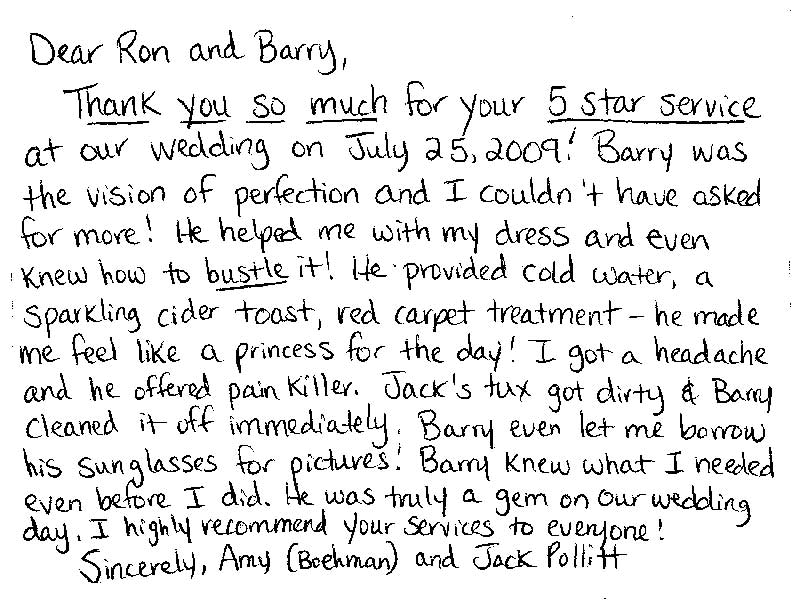 Dear Ron and Barry,
Thank you so much for your 5 star service
at our wedding on July 25, 2009! Barry was
the vision of perfection and I couldn't have asked
for more! He helped me with my dress and even
knew how to bustle it! He provided cold water, a
sparkling cider toast, red carpet treatment - he made
me feel like a princess for the day! I got a headache
and he offered pain killer. Jack's tux got dirty & Barry
cleaned it off immediately. Barry even let me borrow
his sunglasses for pictures! Barry knew what I needed
even before I did. He was truly a gem on our wedding
day. I highly recommend your services to everyone!
Sincerely, Amy (Boehman) and Jack Pollitt